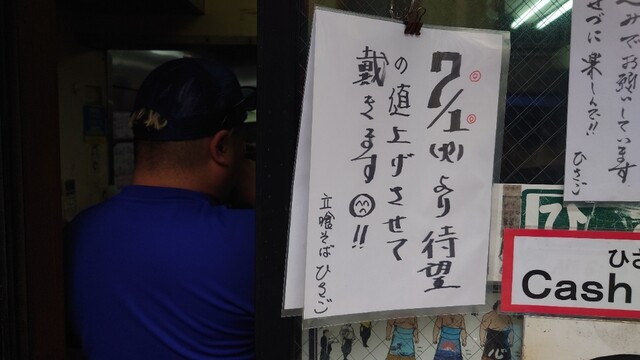 7/1(火)より待望
の値上げさせて
戴きます!!
立喰そばひさご
みでお願いしています
せずに楽しんで!!
ひさご
ひさ
Cash